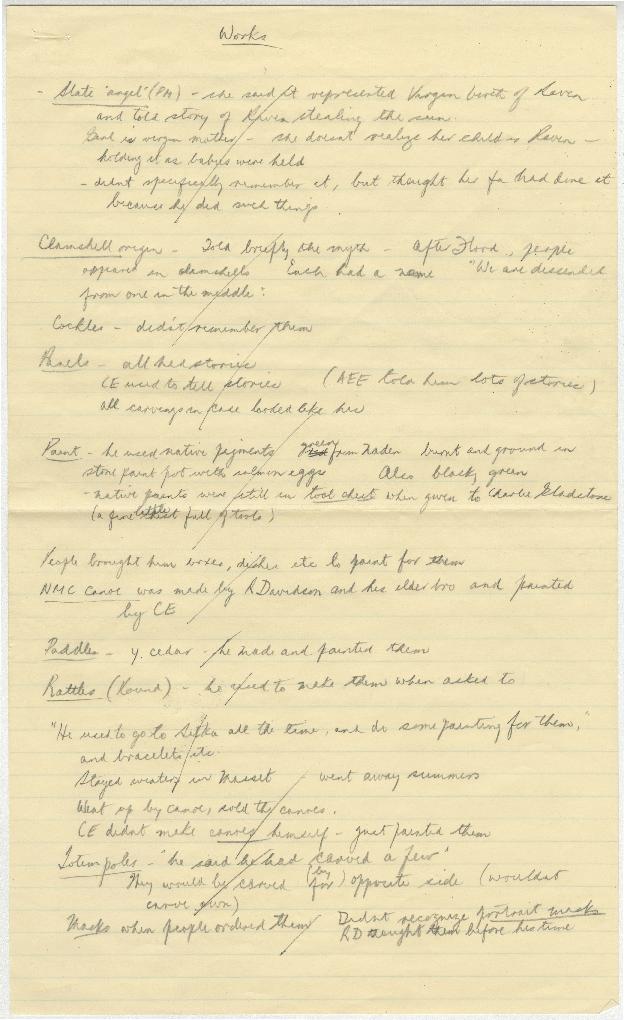 Works
- Slate "angel" (PM) - she said it represented Virgin birth of Raven
and told story of Raven stealing the sun.
Girl is virgin mother - she doesn't realize her child is Raven -
holding it as babies were held
- didn't specifically remember it, but thought her fa had done it
because he did such things
Clamshell origin - Told briefly the myth - After Flood, people
appear in clamshells Each had a name "We are descended
from one in the middle".
Cockles - didn't remember them
Panels - all had stories
CE used to tell stories (AEE told him lots of stories)
all carvings in case looked like his
Paint - he used native pigments green from Naden burnt and ground in
stone paint pot with salmon eggs Also black, green
- native paints were still in tool chest when given to Charlie Gladstone
(a fine little chest full of tools)
People brought him boxes, dishes etc to paint for them
NMC Canoe was made by R Davidson and his elder bro and painted
by CE
Paddles - y. cedar - he made and painted them
Rattles (Round) - he used to make them when asked to
"He used to go to Sitka all the time, and do some painting for them,"
and bracelets etc.
Stayed winters in Masset / went away summers
Went up by canoe, sold the canoes.
CE didnt make canoes himself - just painted them
Totem poles - "he said he had carved a few"
They would be carved for (by) opposite side (wouldnt
carve own)
Masks when people ordered them Didnt recognize portrait masks
RD thought them before his time